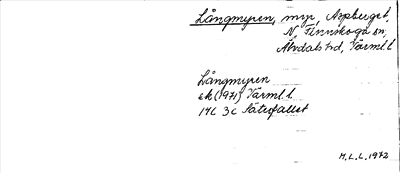 Långmyren, myr, Aspberget,
N. Finnskoga sn,
Älvdals hd, Värml. l.
Långmyren
ek (1971) Värml. l.
17C 3c Säterfallet
M.L.L. 1972